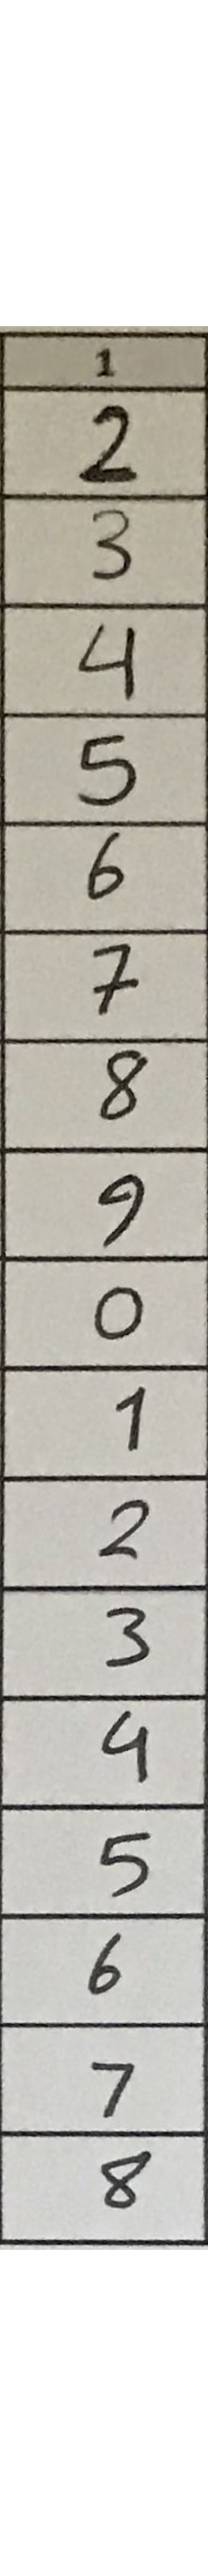 1
2
3
4
5
6
7
8
9
0
1
2
3
4
5
6
7
8